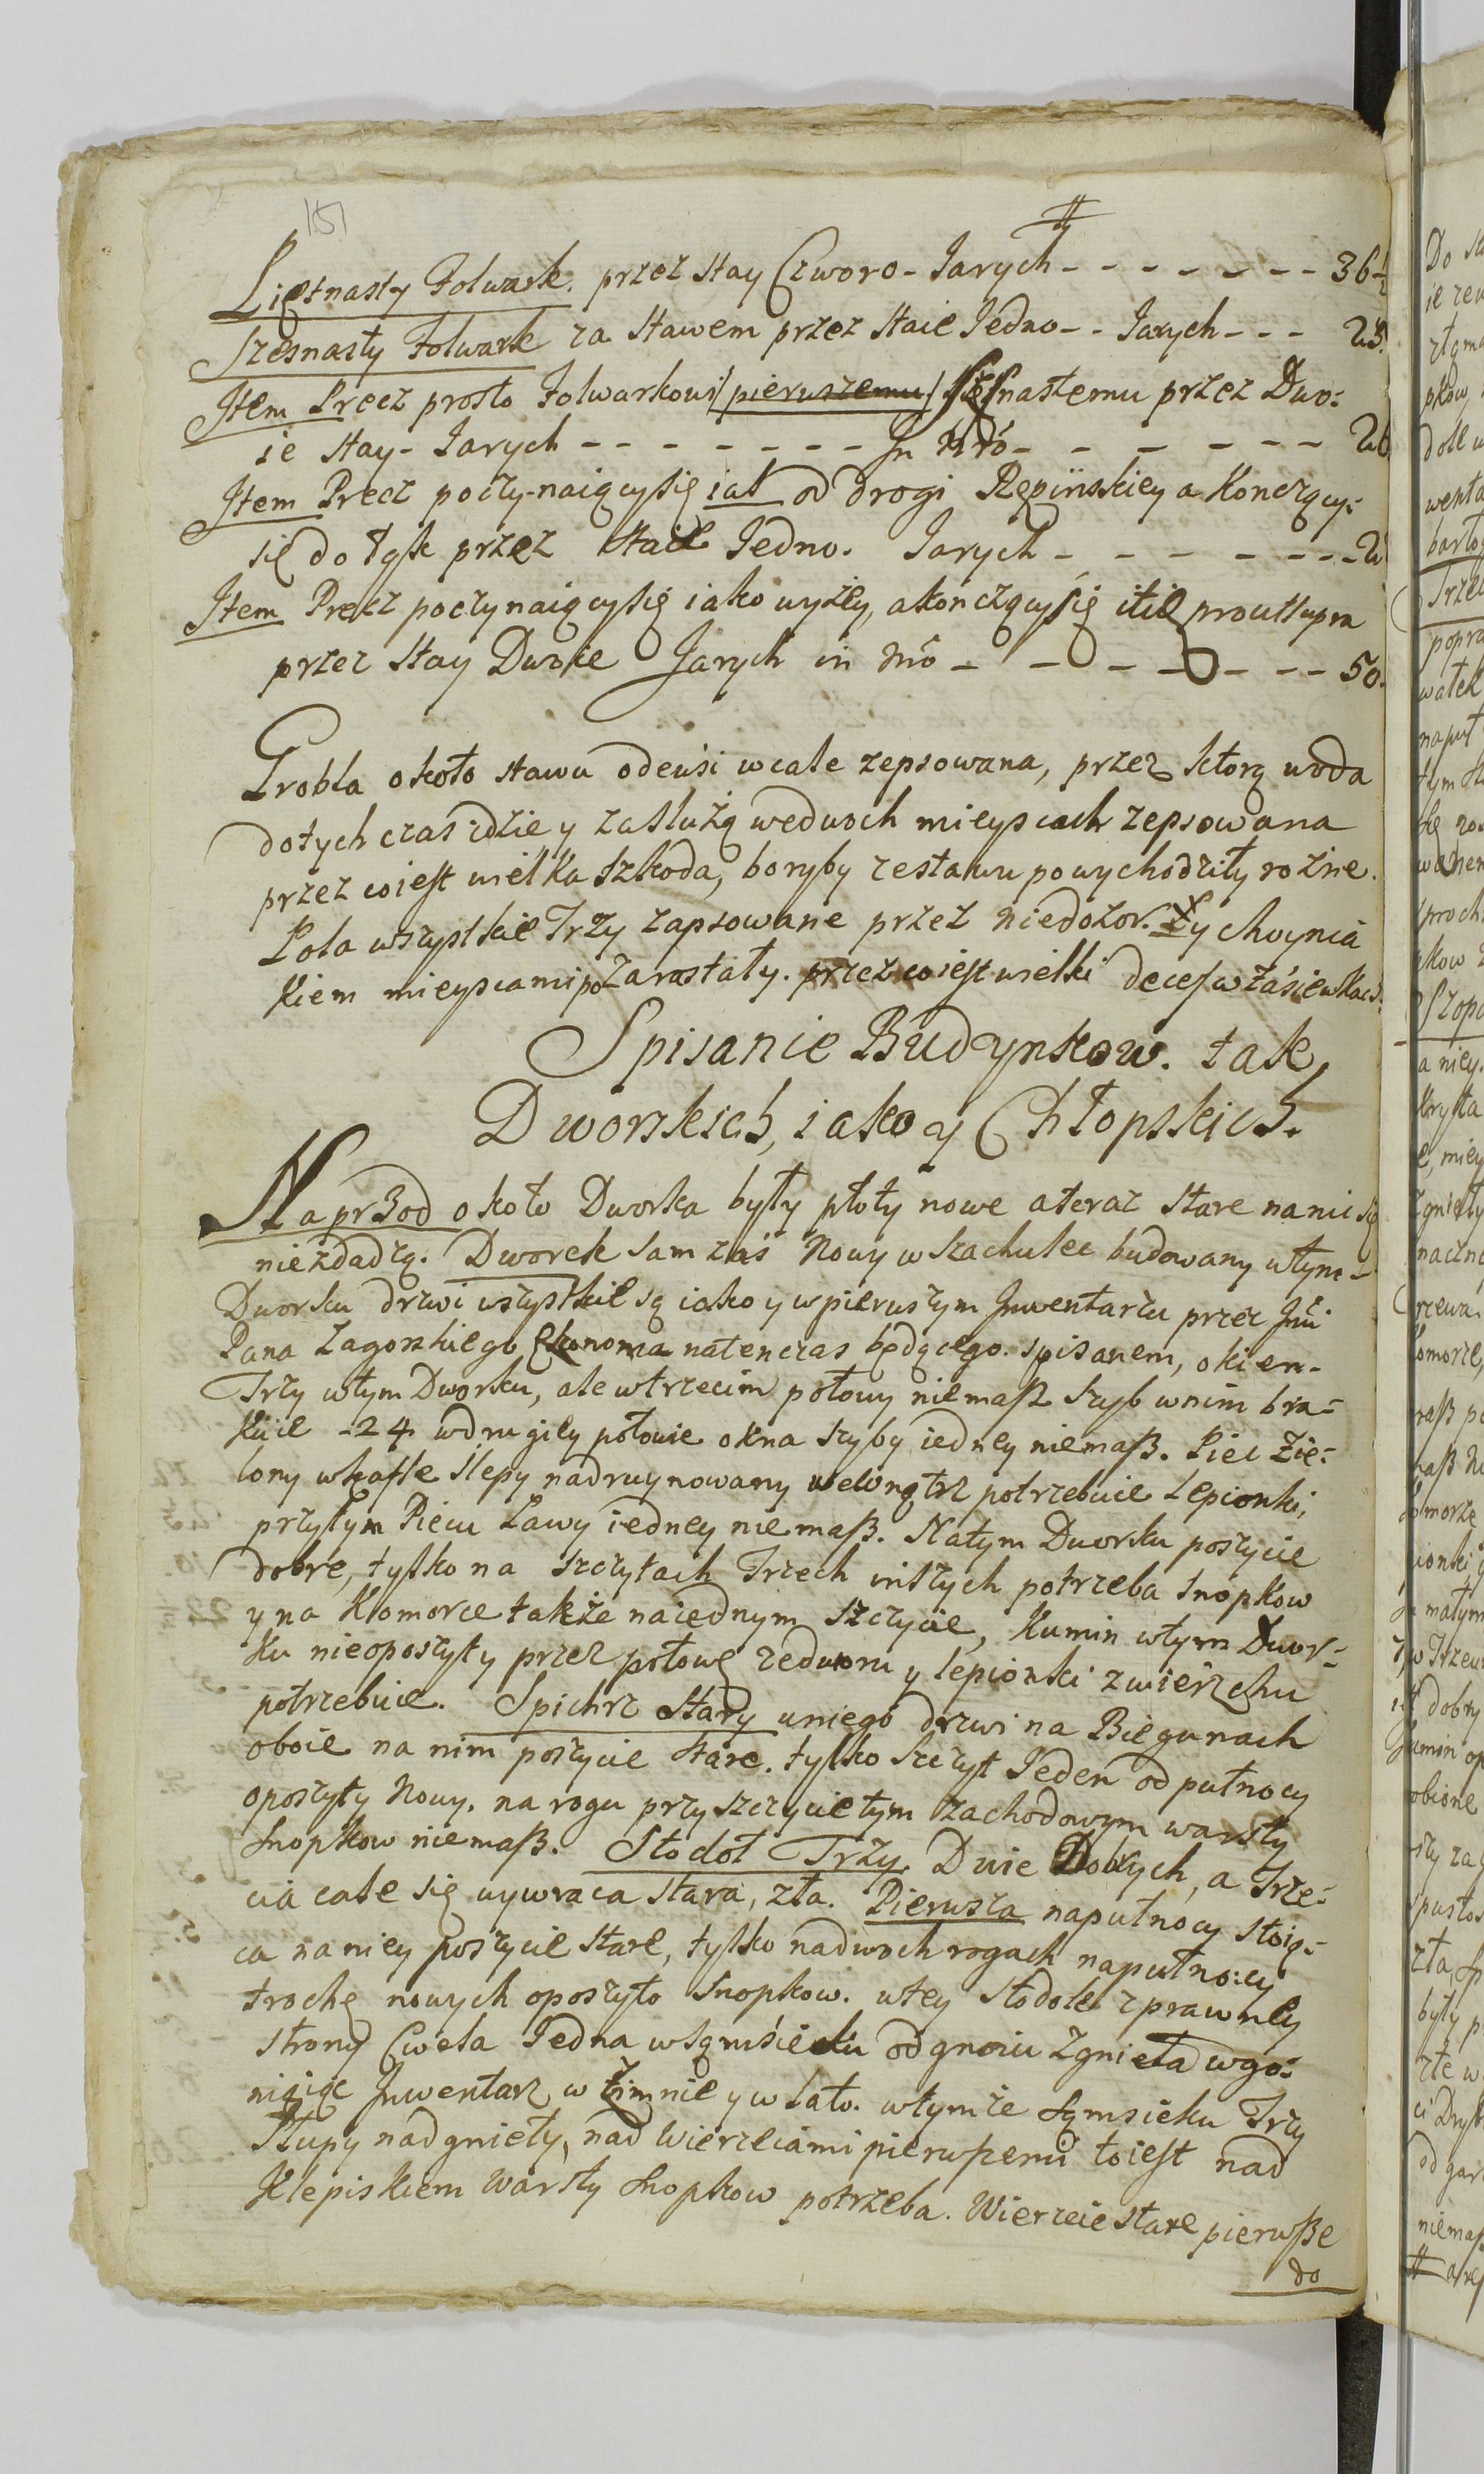 151
Piętnasty Folwark. przez stay Czworo - Jarych - - - - - - - 36
Szesnasty Folwark za stawem przez staie Jedno - - Jarych - - -
Item Precz prosto Folwarkowi pierwszemu Szesnastemu przez Dwo:
ie stay - Jarych - - - - - - - In Nro - - - - - - -
Item Precz poczynaiący się iak od drogi Rępinskiey a Konczący:
się do Łąk przez staie Jedno. Jarych - - - - - - -
Item Precz poczynaiący się iako wyzey, a kończący się itid prout supra
przez stay Dwoie Jarych in Nro - - - - - - - 50.
Grobla około stawu odewsi wcale zepsowana, przez ktorą woda
dotych czas idzie y za słuzą wedwoch mieyscach zepsowana
przez co iest wielka szkoda, bo ryby ze stawu powychodziły rozne.
Pola wszystkie Trzy zapsowane przez niedozor. y chwynia
kiem mieyscami pozarastały. przez co iest wielki deces w zásiewkach.
Spisanie Budynkow. tak
Dworskich, iako y Chłopskich.
Naprzod około Dworka były płoty nowe a teraz stare na nic się
niezdadzą. Dworek sam zaś Nowy w szachulec budowany w tym -
Dworku drzwi wszystkie są iako y w pierwszym Inwentarzu przez Jmci
Pana Zagorskiego Ekonoma natenczas będącego. spisanem, okien -
Trzy w tym Dworku, ale w trzecim połowy niemasz szyb w nim bra=
kuie - 24 w drugiey połowie okna szyby iedney niemasz. Piec Zie=
lony w kafle slepy nadruynowany wewnątrz potrzebuie Lepionki,
przytym Piecu Ławy iedney niemasz. Na tym Dworku poszycie
dobre, tylko na szczytach Trzech inszych potrzeba snopkow
y na Komorce także na iednym szczycie, Kumin w tym Dwor=
ku nieoposzyty przez połowę ze dworu y lepionki z wierzchu
potrzebuie. Spichrz stary u niego drzwi na Biegunach
oboie na nim poszycie stare. tylko szczyt Jeden od pułnocy
oposzyty Nowy. na rogu przy szczycie tym zachodowym warsty
snopkow niemasz. Stodoł Trzy. Dwie Dobrych, a Trze=
cia cale się wywraca stara, zła. Pierwsza na pułnocy stoią=
ca na niey poszycie stare, tylko na dwoch rogach na pułnocy
trochę nowych oposzyto snopkow. w tey stodole z prawney
strony Cwela Jedna w sąmsieku od gnoiu zgnieła wgo=
niąiąc Inwentarz w zimnie y w lato. w tymże sąmsieku Trzy
słupy nadgnieły, nad wierzeiami pierwszemi to iest nad
Klepiskiem warsty snopkow potrzeba. Wierzeie stare pierwsze
do